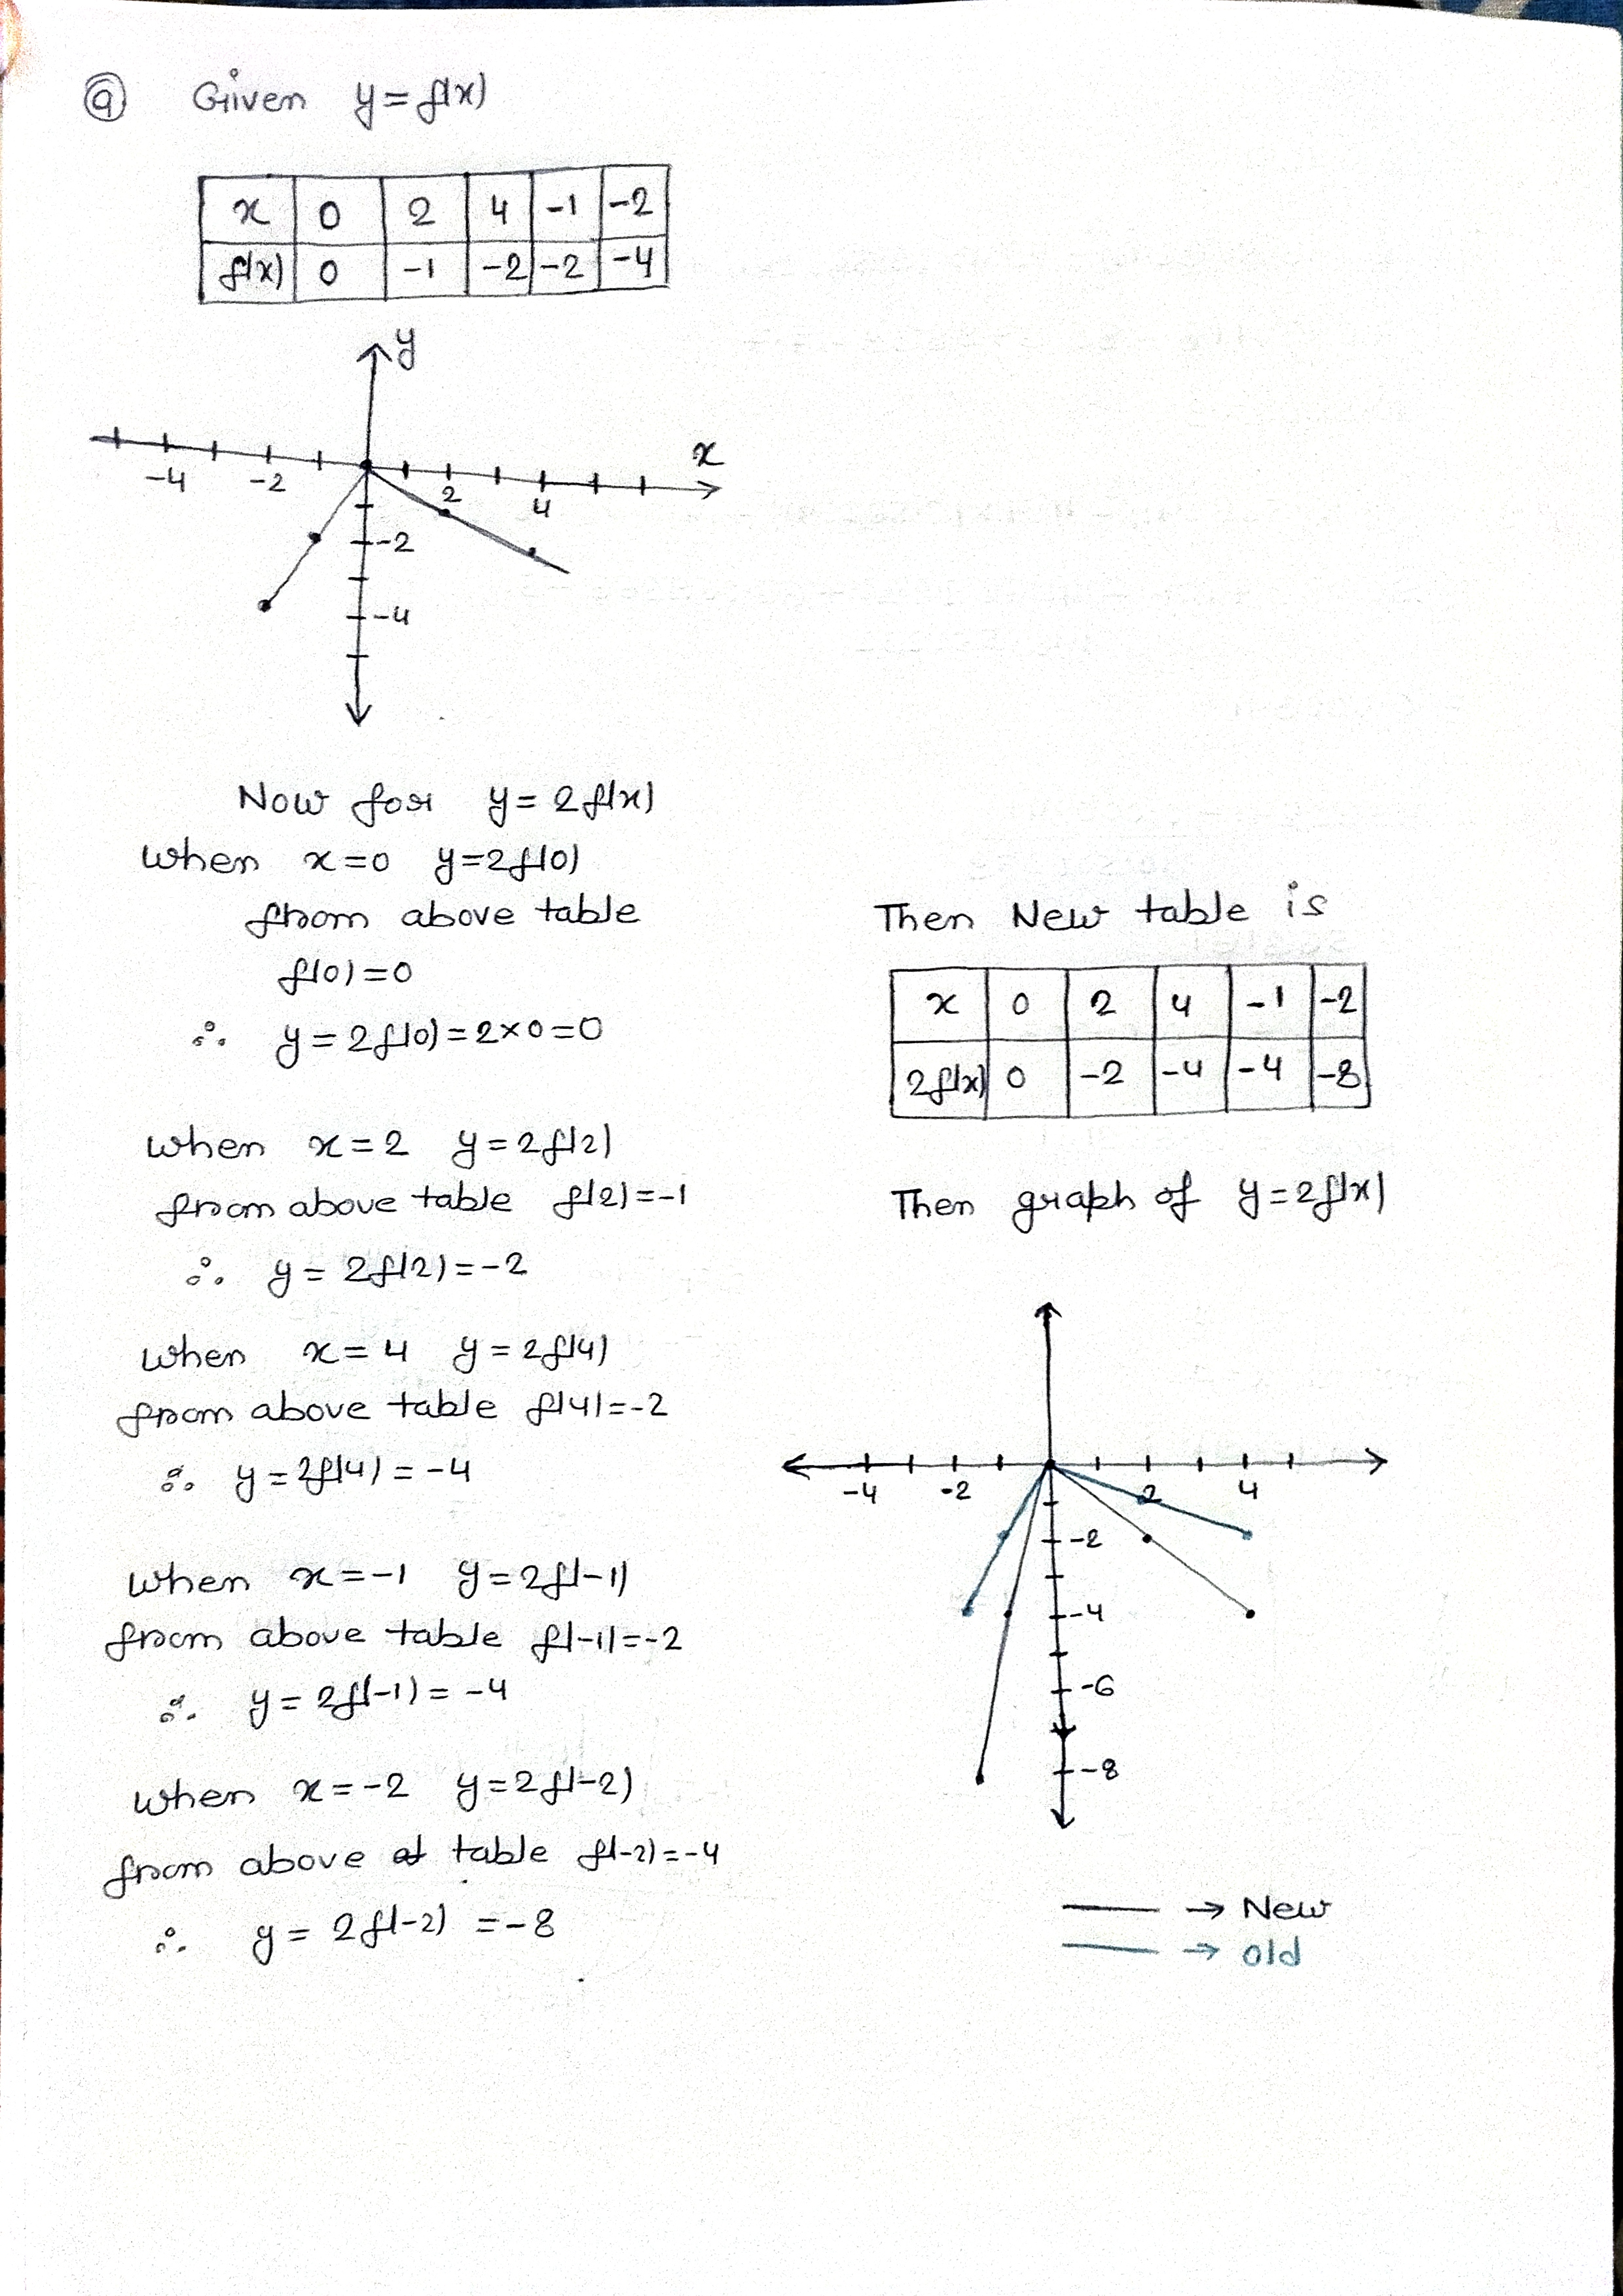 ⓐ Given y=f(x)
x 0 2 4 -1 -2
f(x) 0 -1 -2 -2 -4
y
x
-4 -2 2 4
-2
-4
Now for y = 2f(x)
when x=0 y=2f(0)
from above table
f(0)=0
∴ y = 2f(0) = 2×0=0
when x=2 y=2f(2)
from above table f(2)=-1
∴ y = 2f(2) = -2
when x=4 y=2f(4)
from above table f(4)=-2
∴ y=2f(4) = -4
when x=-1 y=2f(-1)
from above table f(-1)=-2
∴ y=2f(-1) = -4
when x=-2 y=2f(-2)
from above table f(-2)=-4
∴ y = 2f(-2) = -8
Then New table is
x 0 2 4 -1 -2
2f(x) 0 -2 -4 -4 -8
Then graph of y=2f(x)
-4 -2 2 4
-2
-4
-6
-8
→ New
→ old